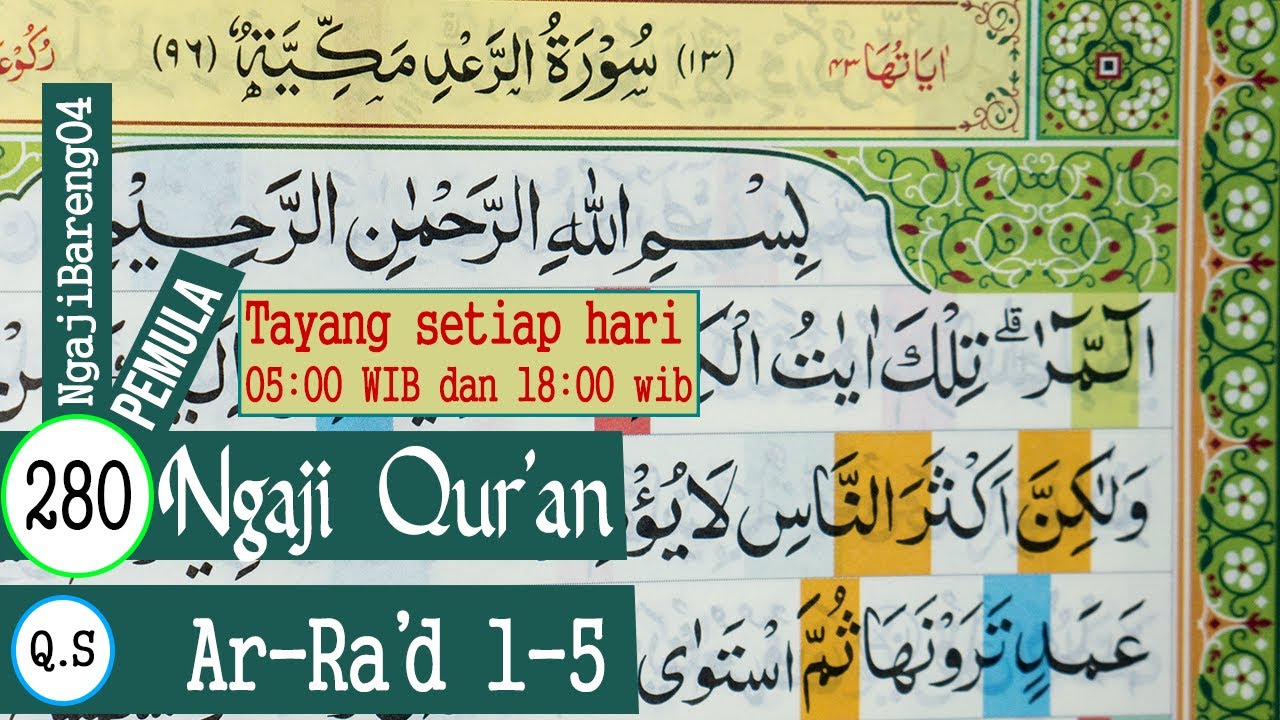 اٰيَاتُهَا ٤٣ (١٣) سُوْرَةُ الرَّعْدِ مَكِّيَّةٌ (٩٦)
بِسْمِ اللّٰهِ الرَّحْمٰنِ الرَّحِيْمِ
NgajiBareng04
PEMULA
Tayang setiap hari
05:00 WIB dan 18:00 wib
الٓمّٓرٰ ۗ تِلْكَ اٰيٰتُ
وَلٰكِنَّ اَكْثَرَ النَّاسِ لَا
عَمَدٍ تَرَوْنَهَا ثُمَّ اسْتَوٰى
280 Ngaji Qur'an
Q.S Ar-Ra'd 1-5